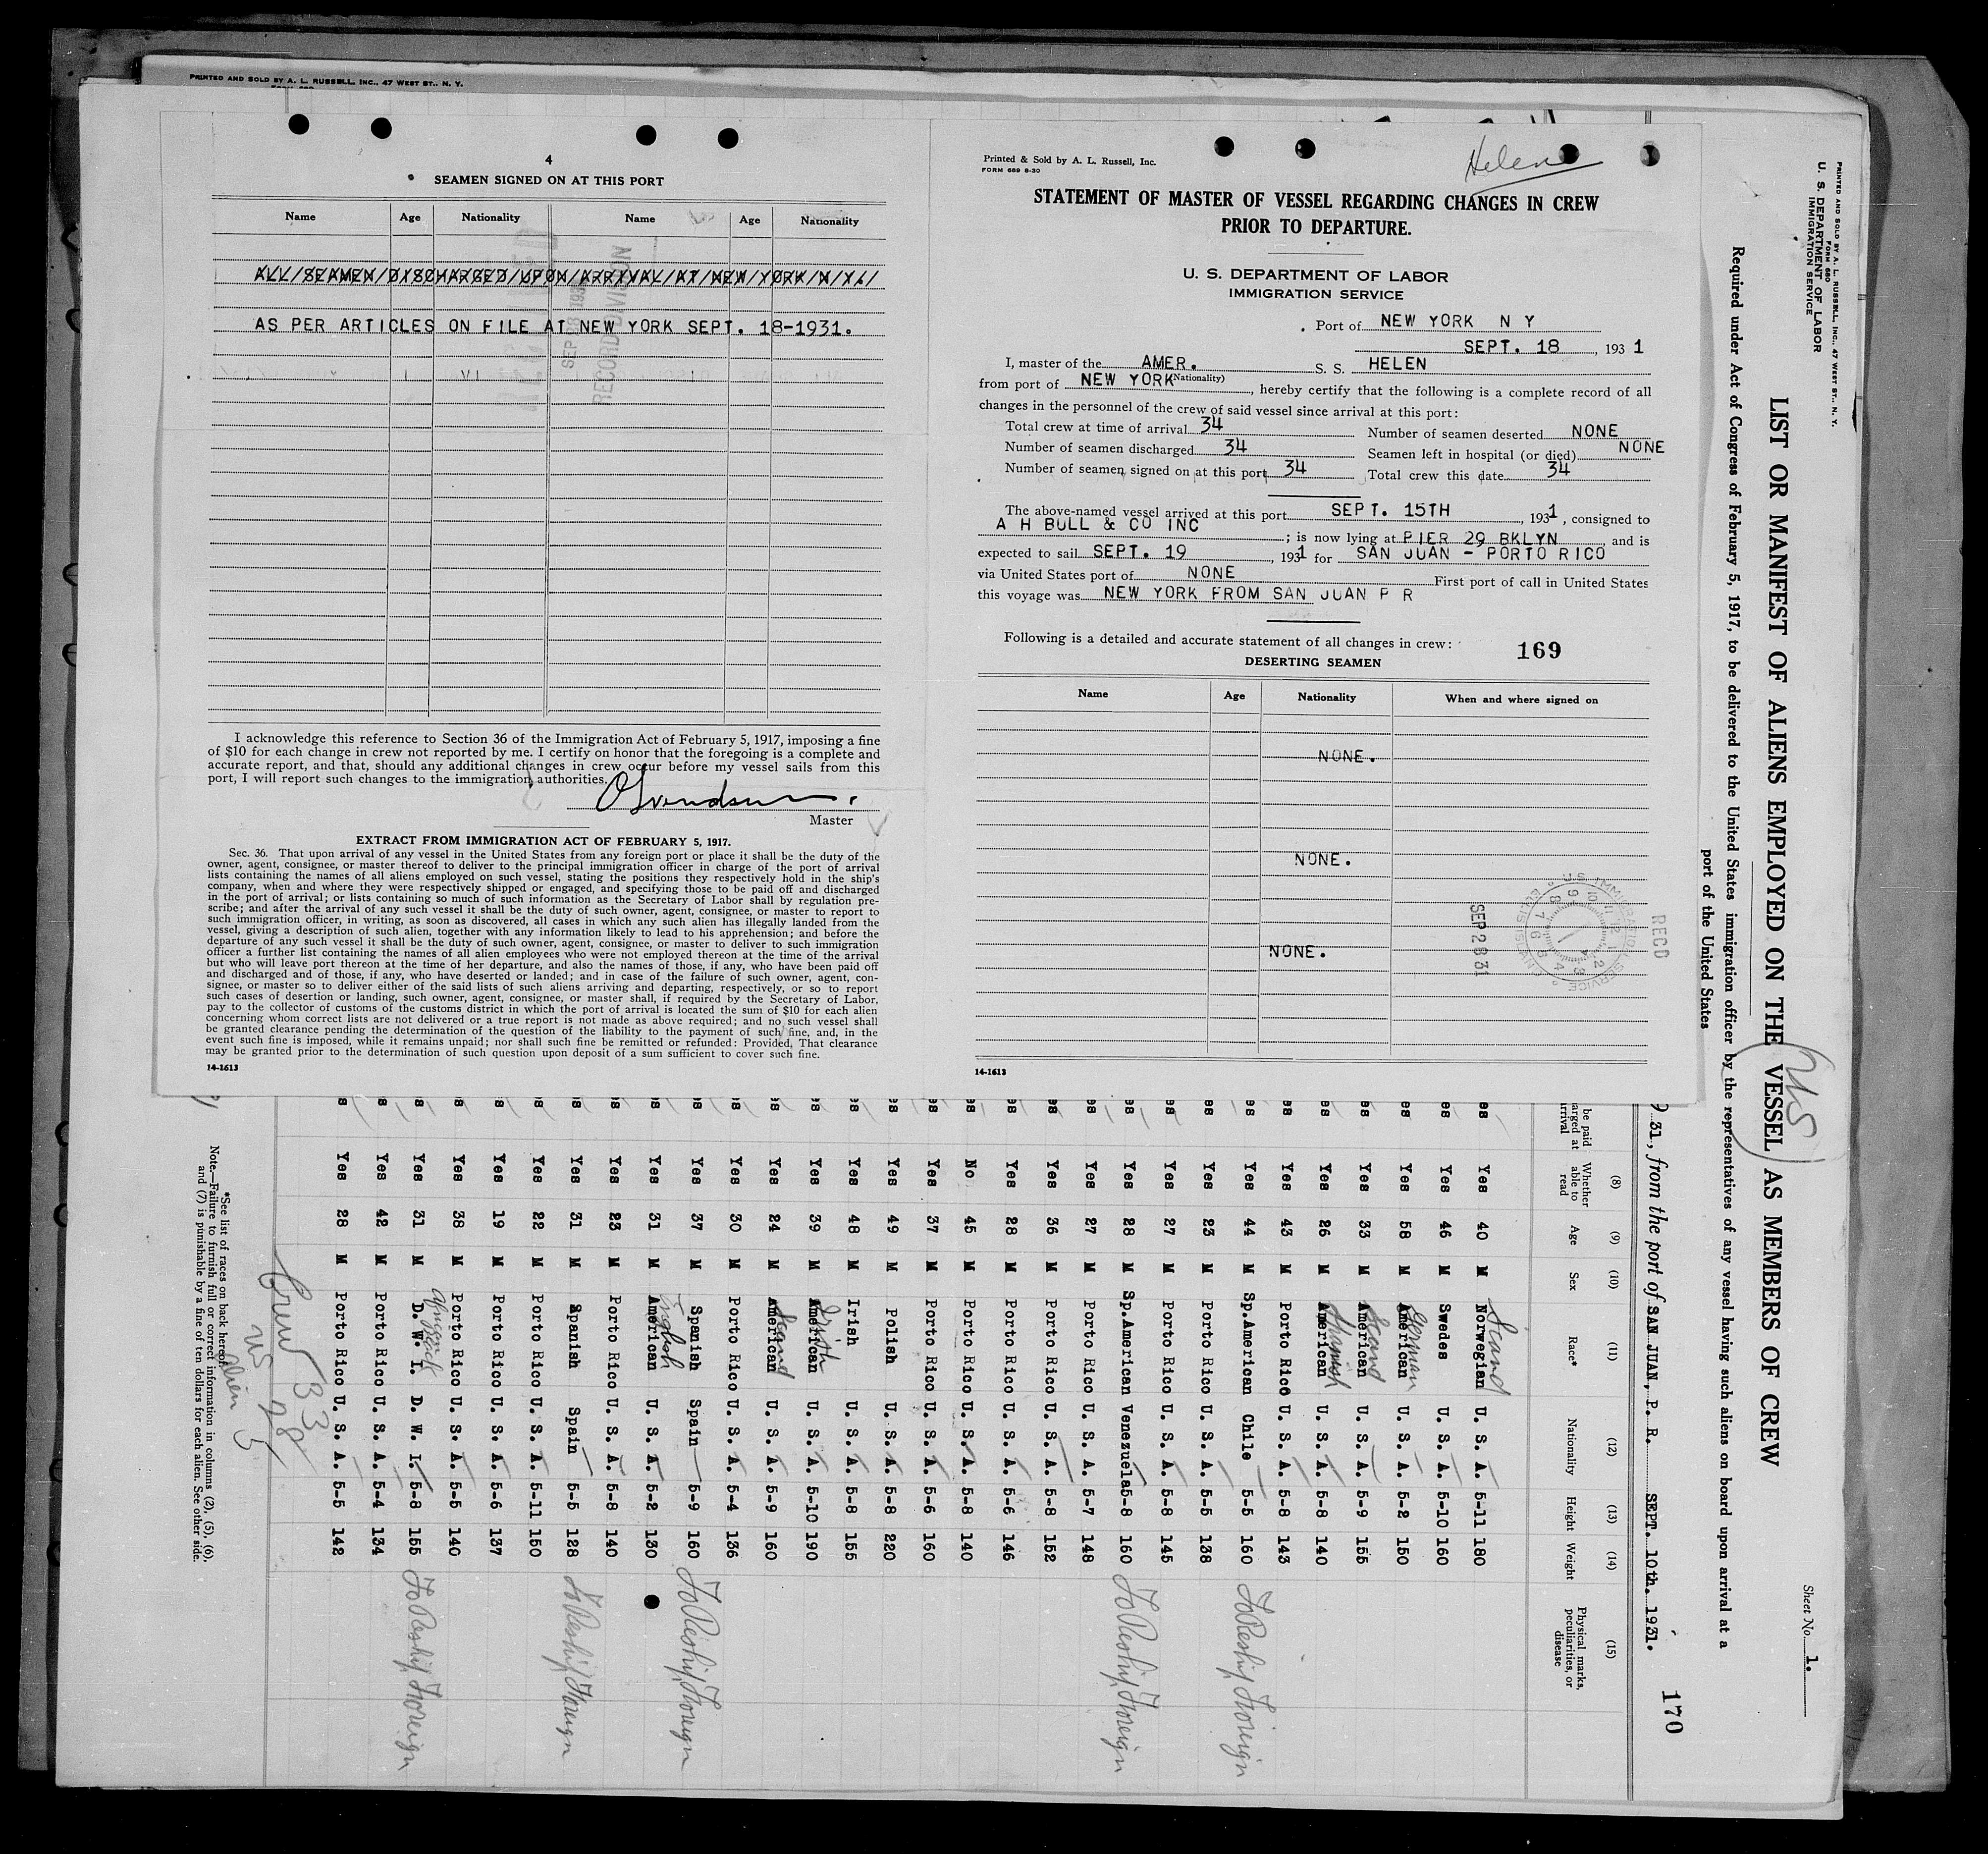 PRINTED AND SOLD BY A. L. RUSSELL, INC., 47 WEST ST., N. Y.
4
SEAMEN SIGNED ON AT THIS PORT
Name Age Nationality Name Age Nationality
ALL/SEAMEN/DISCHARGED/UPON/ARRIVAL/AT/NEW/YORK/N/Y./
AS PER ARTICLES ON FILE AT NEW YORK SEPT. 18-1931.
RECORD DIVISION
I acknowledge this reference to Section 36 of the Immigration Act of February 5, 1917, imposing a fine
of $10 for each change in crew not reported by me. I certify on honor that the foregoing is a complete and
accurate report, and that, should any additional changes in crew occur before my vessel sails from this
port, I will report such changes to the immigration authorities.
Master
EXTRACT FROM IMMIGRATION ACT OF FEBRUARY 5, 1917.
Sec. 36. That upon arrival of any vessel in the United States from any foreign port or place it shall be the duty of the
owner, agent, consignee, or master thereof to deliver to the principal immigration officer in charge of the port of arrival
lists containing the names of all aliens employed on such vessel, stating the positions they respectively hold in the ship's
company, when and where they were respectively shipped or engaged, and specifying those to be paid off and discharged
in the port of arrival; or lists containing so much of such information as the Secretary of Labor shall by regulation pre-
scribe; and after the arrival of any such vessel it shall be the duty of such owner, agent, consignee, or master to report to
such immigration officer, in writing, as soon as discovered, all cases in which any such alien has illegally landed from the
vessel, giving a description of such alien, together with any information likely to lead to his apprehension; and before the
departure of any such vessel it shall be the duty of such owner, agent, consignee, or master to deliver to such immigration
officer a further list containing the names of all alien employees who were not employed thereon at the time of the arrival
but who will leave port thereon at the time of her departure, and also the names of those, if any, who have been paid off
and discharged and of those, if any, who have deserted or landed; and in case of the failure of such owner, agent, con-
signee, or master so to deliver either of the said lists of such aliens arriving and departing, respectively, or so to report
such cases of desertion or landing, such owner, agent, consignee, or master shall, if required by the Secretary of Labor,
pay to the collector of customs of the customs district in which the port of arrival is located the sum of $10 for each alien
concerning whom correct lists are not delivered or a true report is not made as above required; and no such vessel shall
be granted clearance pending the determination of the question of the liability to the payment of such fine, and, in the
event such fine is imposed, while it remains unpaid; nor shall such fine be remitted or refunded: Provided, That clearance
may be granted prior to the determination of such question upon deposit of a sum sufficient to cover such fine.
14-1613
Printed & Sold by A. L. Russell, Inc.
FORM 689 8-30
Helen
STATEMENT OF MASTER OF VESSEL REGARDING CHANGES IN CREW
PRIOR TO DEPARTURE.
U. S. DEPARTMENT OF LABOR
IMMIGRATION SERVICE
Port of NEW YORK N Y
SEPT. 18, 1931
I, master of the AMER. S. S. HELEN
from port of NEW YORK (Nationality), hereby certify that the following is a complete record of all
changes in the personnel of the crew of said vessel since arrival at this port:
Total crew at time of arrival 34 Number of seamen deserted NONE
Number of seamen discharged 34 Seamen left in hospital (or died) NONE
Number of seamen signed on at this port 34 Total crew this date 34
The above-named vessel arrived at this port SEPT. 15TH, 1931, consigned to
A H BULL & CO INC; is now lying at PIER 29 BKLYN, and is
expected to sail SEPT. 19, 1931 for SAN JUAN - PORTO RICO
via United States port of NONE First port of call in United States
this voyage was NEW YORK FROM SAN JUAN P R
Following is a detailed and accurate statement of all changes in crew: 169
DESERTING SEAMEN
Name Age Nationality When and where signed on
NONE.
NONE.
NONE.
RECD
SEP 28 31
14-1613
PRINTED AND SOLD BY A. L. RUSSELL, INC., 47 WEST ST., N. Y.
FORM 680
U. S. DEPARTMENT OF LABOR
IMMIGRATION SERVICE
Sheet No. 1.
LIST OR MANIFEST OF ALIENS EMPLOYED ON THE VESSEL AS MEMBERS OF CREW
US
Required under Act of Congress of February 5, 1917, to be delivered to the United States immigration officer by the representatives of any vessel having such aliens on board upon arrival at a
port of the United States
170
31, from the port of SAN JUAN, P. R. SEPT. 10th. 1931.
(8) (9) (10) (11) (12) (13) (14) (15)
Whether able to read Age Sex Race* Nationality Height Weight Physical marks, peculiarities, or disease
Yes 40 M Norwegian Scand U. S. A. 5-11 180
Yes 46 M Swedes U. S. A. 5-10 160
Yes 58 M American German U. S. A. 5-2 150
Yes 33 M American Scand U. S. A. 5-9 155
Yes 26 M American Spanish U. S. A. 5-8 140
Yes 43 M Porto Rico U. S. A. 5-8 143
Yes 44 M Sp.American Chile 5-5 160 To Reship Foreign
Yes 23 M Porto Rico U. S. A. 5-5 138
Yes 27 M Porto Rico U. S. A. 5-8 145
Yes 28 M Sp.American Venezuela 5-8 160 To Reship Foreign
Yes 27 M Porto Rico U. S. A. 5-7 148
Yes 36 M Porto Rico U. S. A. 5-8 152
Yes 28 M Porto Rico U. S. A. 5-6 146
No 45 M Porto Rico U. S. A. 5-8 140
Yes 37 M Porto Rico U. S. A. 5-6 160
Yes 49 M Polish U. S. A. 5-8 220
Yes 48 M Irish U. S. A. 5-8 155
Yes 39 M American Irish U. S. A. 5-10 190
Yes 24 M American Scand U. S. A. 5-9 160
Yes 30 M Porto Rico U. S. A. 5-4 136
Yes 37 M Spanish Spain 5-9 160 To Reship Foreign
Yes 31 M American English U. S. A. 5-2 130
Yes 23 M Porto Rico U. S. A. 5-8 140
Yes 31 M Spanish Spain 5-5 128 To Reship Foreign
Yes 22 M Porto Rico U. S. A. 5-11 150
Yes 19 M Porto Rico U. S. A. 5-6 137
Yes 38 M Porto Rico U. S. A. 5-5 140
Yes 31 M D. W. I. D. W. I. 5-8 155 To Reship Foreign
Yes 42 M Porto Rico U. S. A. 5-4 134
Yes 28 M Porto Rico U. S. A. 5-5 142
Crew 33
US 28
Alien 5
*See list of races on back hereof.
Note.—Failure to furnish full or correct information in columns (2), (5), (6),
and (7) is punishable by a fine of ten dollars for each alien. See other side.